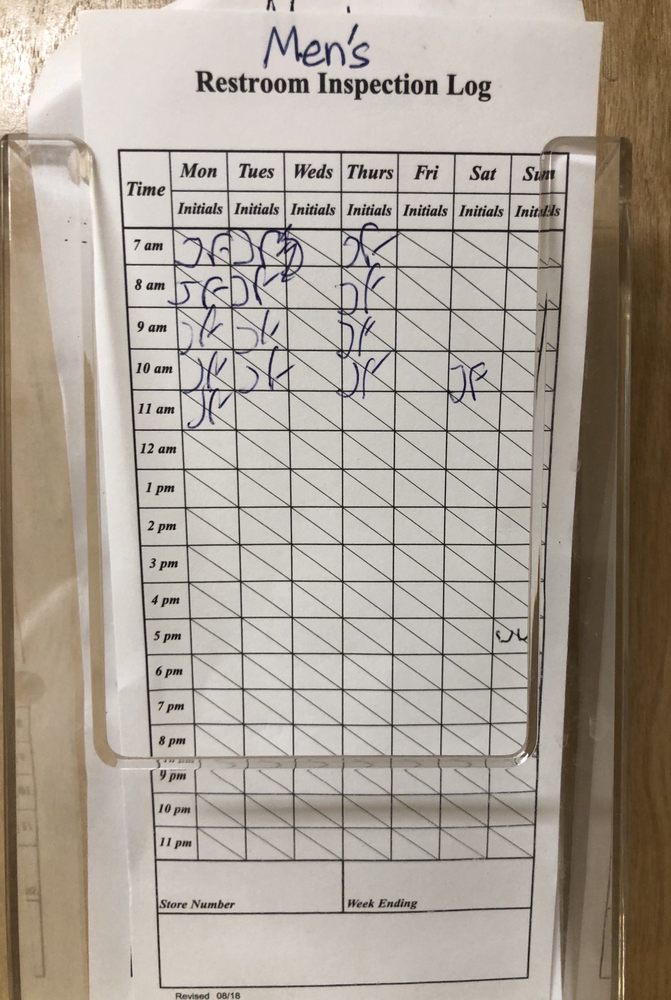 Men's
Restroom Inspection Log
Time Mon Tues Weds Thurs Fri Sat Sun
Initials Initials Initials Initials Initials Initials Initials
7 am JF JF JF
8 am JF JF JF
9 am JF JF JF
10 am JF JF JF JF
11 am JF
12 am
1 pm
2 pm
3 pm
4 pm
5 pm
6 pm
7 pm
8 pm
9 pm
10 pm
11 pm
Store Number Week Ending
Revised 08/18